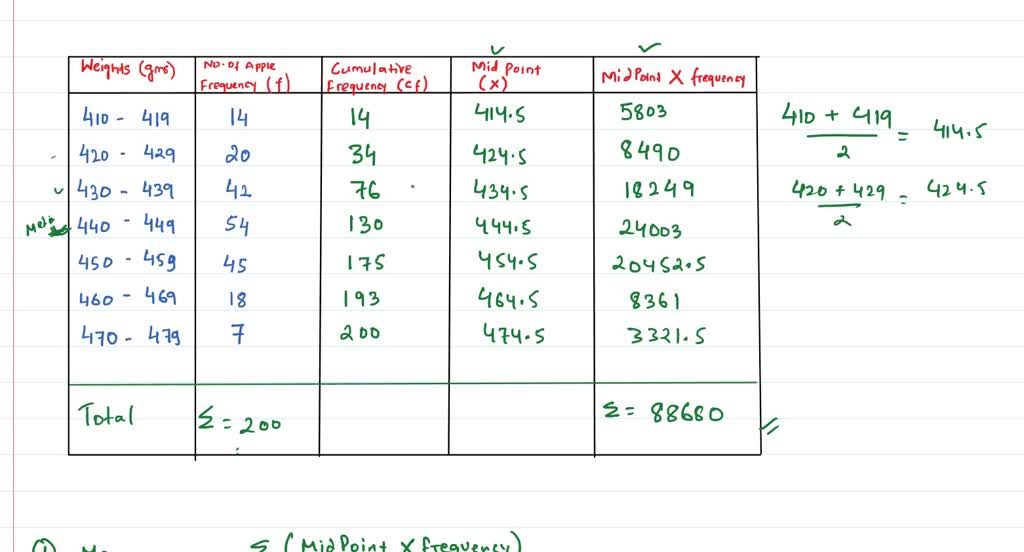 Weights (gms) No. of Apple Frequency (f) Cumulative Frequency (cf) Mid Point (X) MidPoint X frequency
410 - 419 14 14 414.5 5803
420 - 429 20 34 424.5 8490
430 - 439 42 76 434.5 18249
440 - 449 54 130 444.5 24003
450 - 459 45 175 454.5 20452.5
460 - 469 18 193 464.5 8361
470 - 479 7 200 474.5 3321.5
Total Σ = 200 Σ = 88680
410 + 419 / 2 = 414.5
420 + 429 / 2 = 424.5
Σ (MidPoint X frequency)